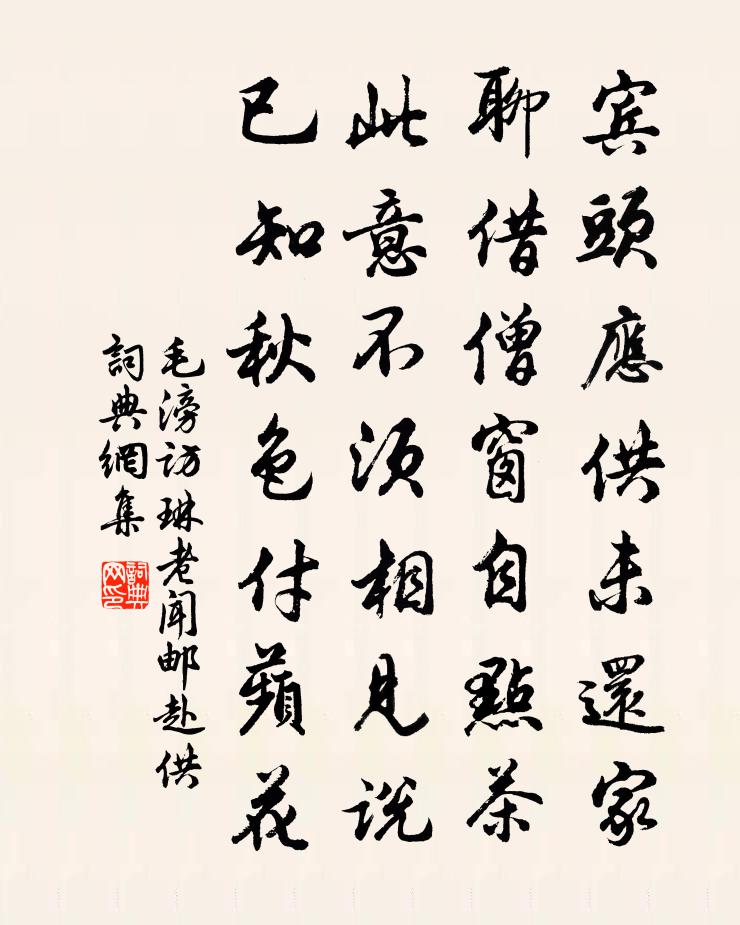 宾頭應供未還家
聊借僧窗自點茶
此意不須相見説
已知秋色付蘋花
毛滂访琳老闻邮赴供
詞典網集
詞典网印